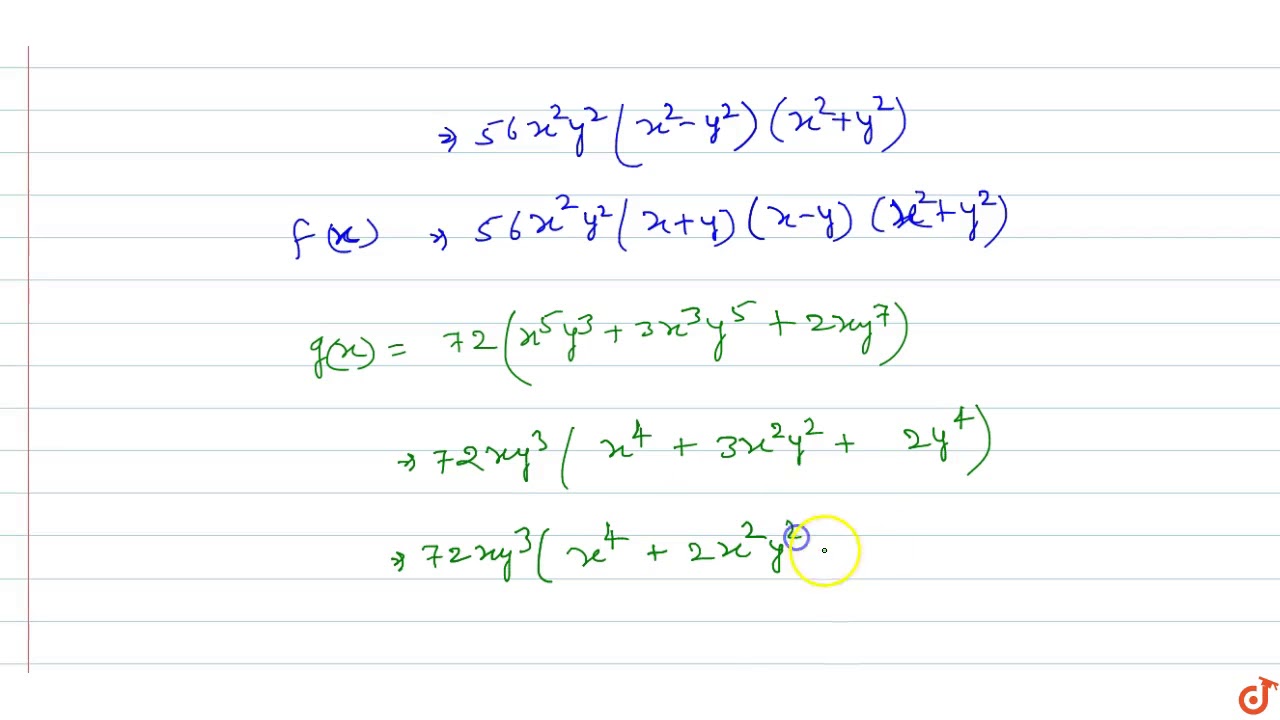 ⇒ 56x²y²(x²-y²)(x²+y²)
f(x) ⇒ 56x²y²(x+y)(x-y)(x²+y²)
g(x) = 72(x⁵y³ + 3x³y⁵ + 2xy⁷)
⇒ 72xy³(x⁴ + 3x²y² + 2y⁴)
⇒ 72xy³(x⁴ + 2x²y²